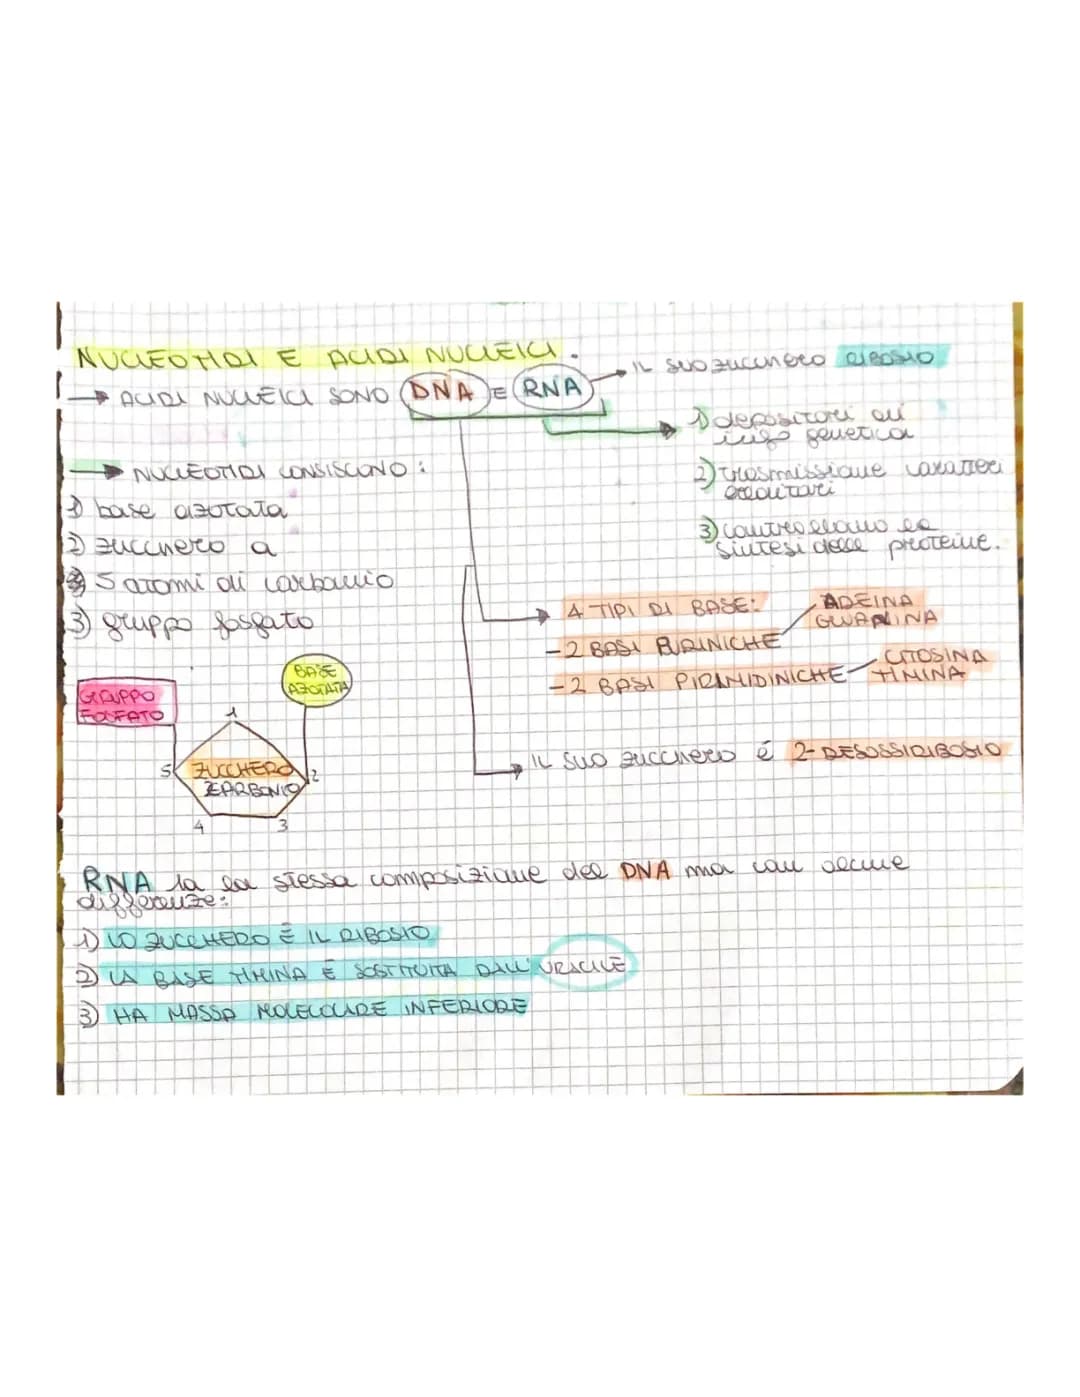 NUCLEOTIDI E ACIDI NUCLEICI.
→ ACIDI NUCLEICI SONO DNA E RNA
IL SUO ZUCCHERO RIBOSIO
1) depositari di
info genetica
2) trasmissione caratteri
ereditari
3) controllano la
sintesi delle proteine.
→ NUCLEOTIDI CONSISCONO:
1) base azotata
2) zucchero a
5 atomi di carbonio
3) gruppo fosfato
4 TIPI DI BASE:
- 2 BASI PURINICHE
ADEINA
GUANINA
- 2 BASI PIRIMIDINICHE
CITOSINA
TIMINA
IL SUO ZUCCHERO é 2-DESOSSIRIBOSIO
GRUPPO
FOSFATO
BASE
AZOTATA
1
5
ZUCCHERO
2
4
3
RNA la stessa composizione del DNA ma con alcune
differenze:
1) LO ZUCCHERO È IL RIBOSIO
2) LA BASE TIMINA È SOSTITUITA DALL'URACILE
3) HA MASSA MOLECOLARE INFERIORE